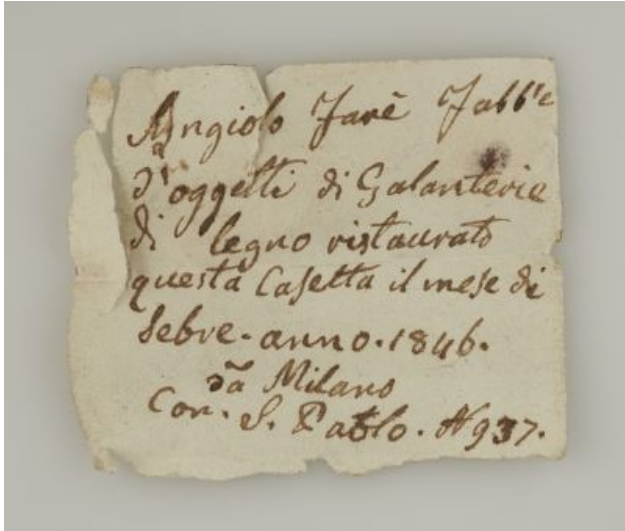 Angiolo Farè Fabb.e
d'oggetti di Galanterie
di legno ristaurato
questa Casetta il mese di
Sebre. anno. 1846.
da Milano
Con. S. Paolo. N 937.